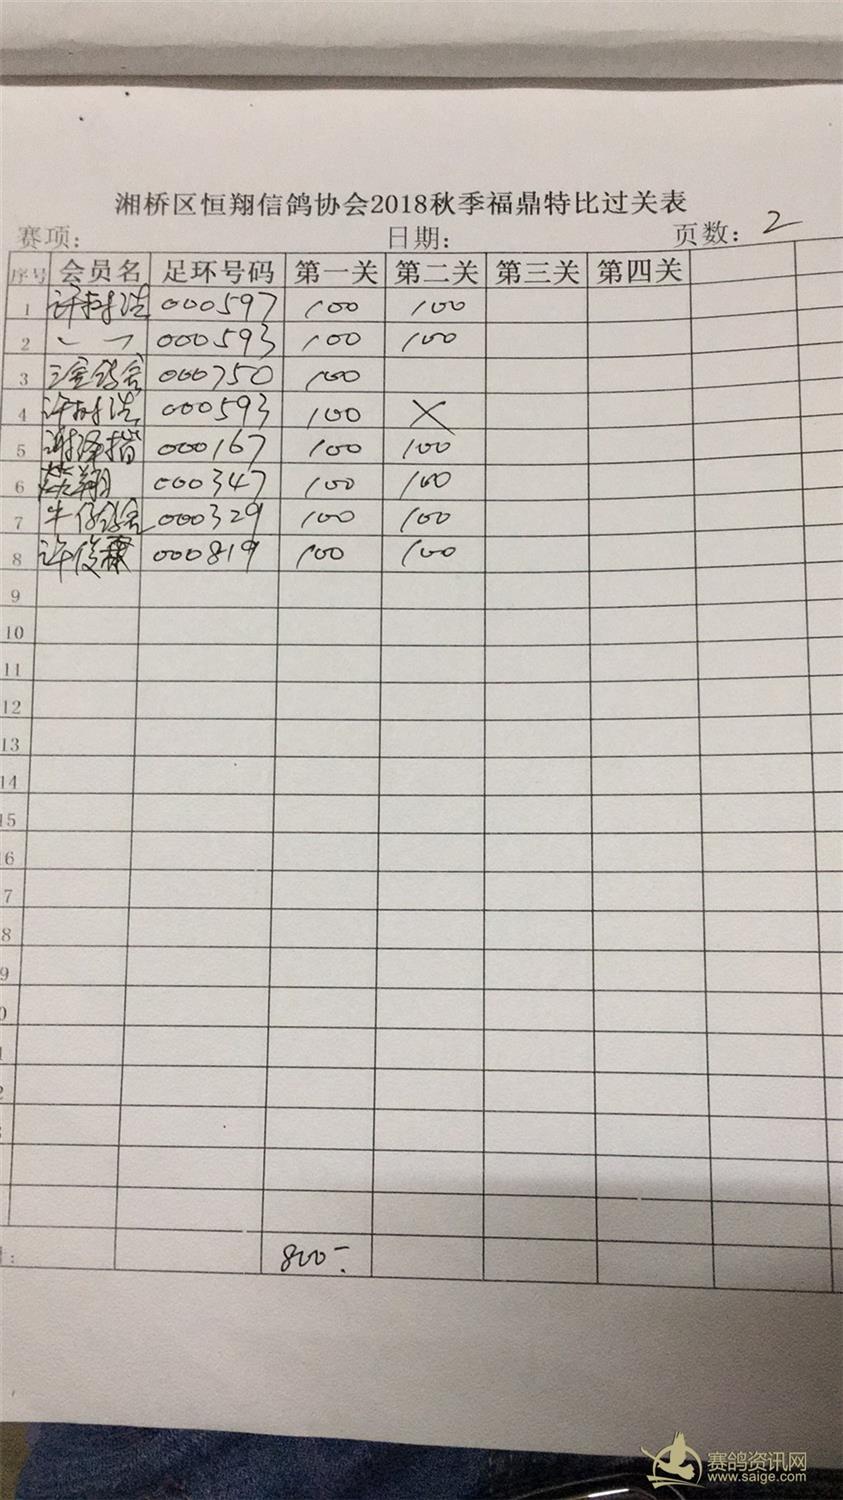 湘桥区恒翔信鸽协会2018秋季福鼎特比过关表
赛项: 日期: 页数: 2
序号 会员名 足环号码 第一关 第二关 第三关 第四关
1 000597 100 100
2 000593 100 100
3 000750 100
4 000593 100 ×
5 000167 100 100
6 翔 000347 100 100
7 牛仔鸽舍 000329 100 100
8 许俊霖 000819 100 100
9
10
11
12
13
14
15
6
7
8
9
0
1
2
: 800-
赛鸽资讯网
www.saige.com